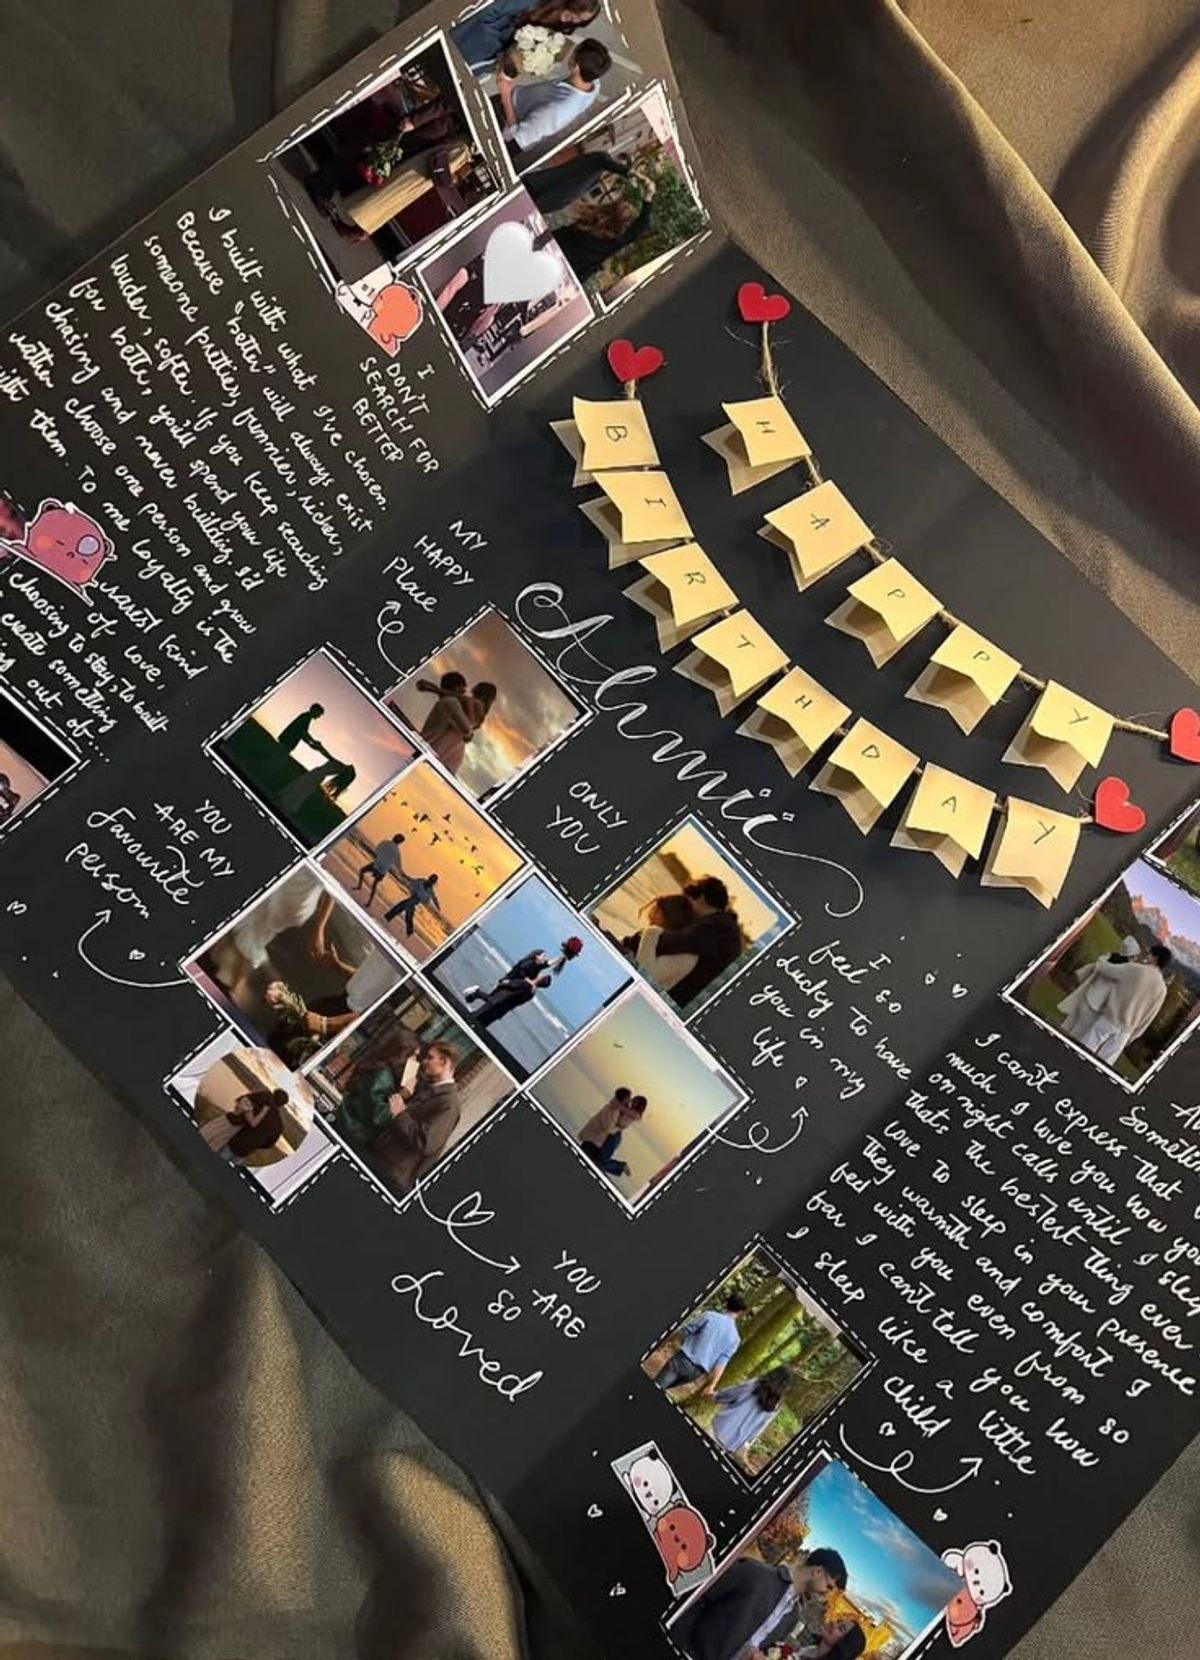 I built with what I've chosen.
Because "better" will always exist
someone prettier, funnier, richer,
louder, softer. If you keep searching
for better, you'll spend your life
chasing and never building. I'd
rather choose one person and grow
with them. To me loyalty is the
rarest kind
of love,
choosing to stay, to built
create something
out of...
I
DON'T
SEARCH FOR
BETTER
HAPPY
BIRTHDAY
MY
HAPPY
Place
YOU
ARE MY
favourite
person
ONLY
YOU
I
feel so
lucky to have
you in my
life
YOU
ARE
SO
Loved
I can't express that
much I love you how you
on night calls until I sleep
that's the bestest thing ever
love to sleep in your presence
They warmth and comfort I
feel with you even from so
far I can't tell you how
I sleep like a little
child